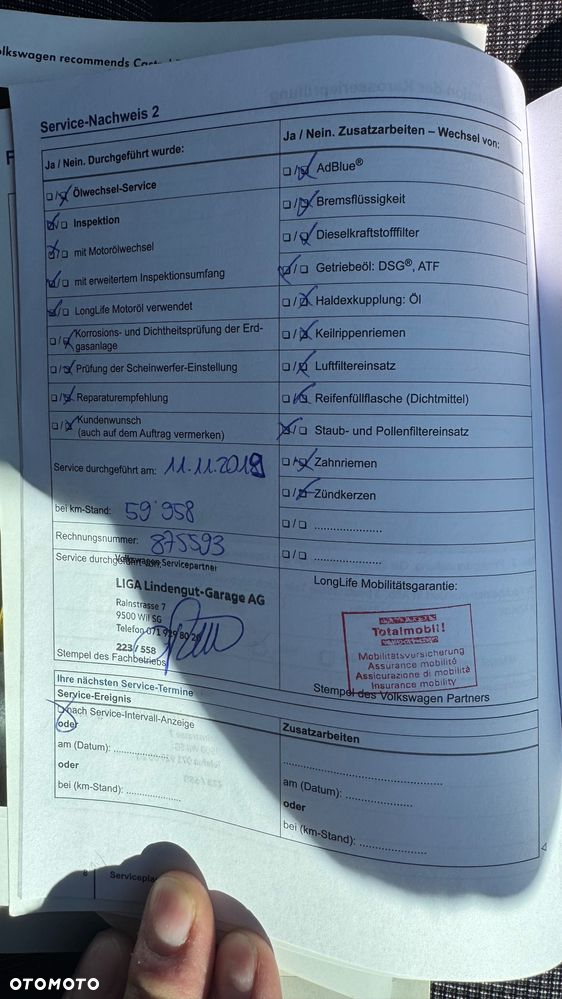 olkswagen recommends
Service-Nachweis 2
Ja / Nein. Durchgeführt wurde:
Ölwechsel-Service
Inspektion
mit Motorölwechsel
mit erweitertem Inspektionsumfang
LongLife Motoröl verwendet
Korrosions- und Dichtheitsprüfung der Erd-
gasanlage
Prüfung der Scheinwerfer-Einstellung
Reparaturempfehlung
Kundenwunsch
(auch auf dem Auftrag vermerken)
Service durchgeführt am: 11.11.2019
bei km-Stand: 59'958
Rechnungsnummer: 875593
Service durchgeführt
Volkswagen Servicepartner
LIGA Lindengut-Garage AG
Rainstrasse 7
9500 Wil SG
Telefon 071 929 80 20
223 / 558
Stempel des Fachbetriebs
Ja / Nein. Zusatzarbeiten – Wechsel von:
AdBlue®
Bremsflüssigkeit
Dieselkraftstofffilter
Getriebeöl: DSG®, ATF
Haldexkupplung: Öl
Keilrippenriemen
Luftfiltereinsatz
Reifenfüllflasche (Dichtmittel)
Staub- und Pollenfiltereinsatz
Zahnriemen
Zündkerzen
LongLife Mobilitätsgarantie:
Totalmobil!
Mobilitätsversicherung
Assurance mobilité
Assicurazione di mobilità
Insurance mobility
Stempel des Volkswagen Partners
Ihre nächsten Service-Termine
Service-Ereignis
nach Service-Intervall-Anzeige
oder
am (Datum): ..................
oder
bei (km-Stand): ..................
Zusatzarbeiten
am (Datum): ......................
oder
bei (km-Stand): ......................
8
Servicepla
OTOMOTO